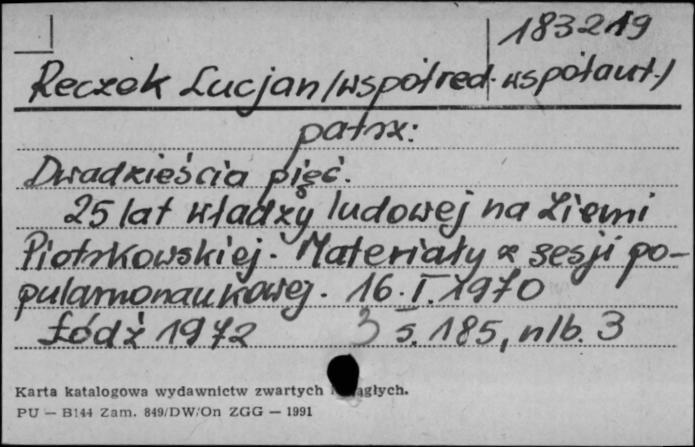 183219
Reczek Lucjan /współred. współaut./
patrz:
Dwadzieścia pięć.
25 lat władzy ludowej na Ziemi
Piotrkowskiej. Materiały z sesji po-
pularnonaukowej. 16.I.1970
Łódź 1972 s. 185, nlb. 3
Karta katalogowa wydawnictw zwartych
PU — B144 Zam. 849/DW/On ZGG — 1991